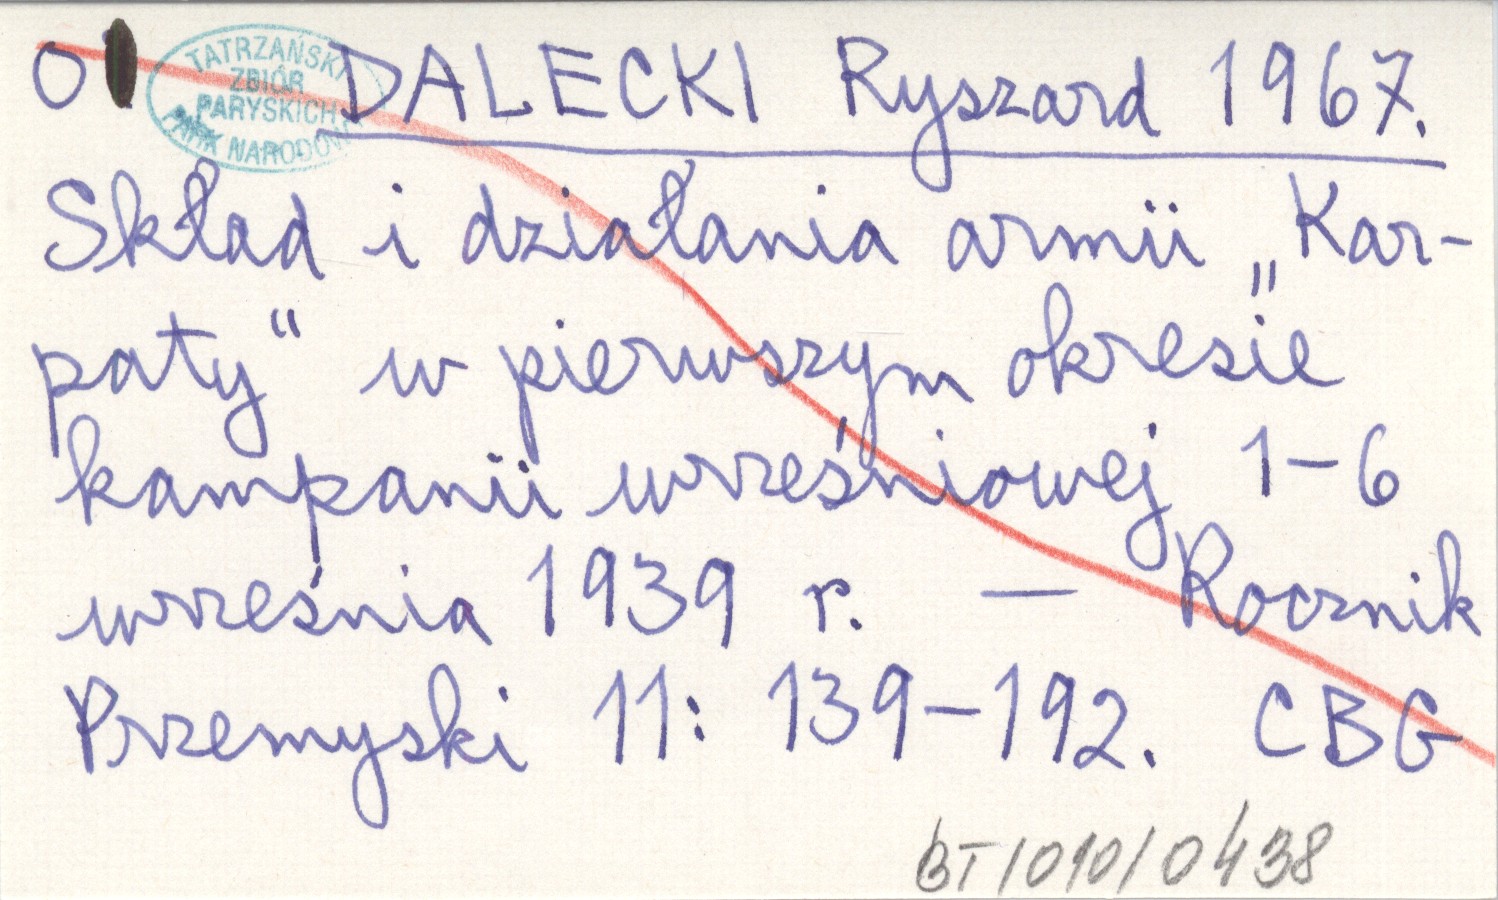 O DALECKI Ryszard 1967.
TATRZAŃSKI
ZBIÓR
PARYSKICH
PARK NARODOWY
Skład i działania armii „Kar-
paty“ w pierwszym okresie
kampanii wrześniowej 1–6
września 1939 r. — Rocznik
Przemyski 11: 139–192. CBG
BT/010/0438